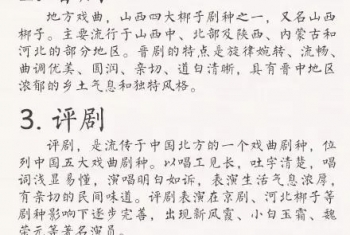 地方戏曲，山西四大梆子剧种之一，又名山西
梆子。主要流行于山西中、北部及陕西、内蒙古和
河北的部分地区。晋剧的特点是旋律婉转、流畅、
曲调优美、圆润、亲切、道白清晰，具有晋中地区
浓郁的乡土气息和独特风格。
3. 评剧
评剧，是流传于中国北方的一个戏曲剧种，位
列中国五大戏曲剧种。以唱工见长，吐字清楚，唱
词浅显易懂，演唱明白如诉，表演生活气息浓厚，
有亲切的民间味道。评剧表演在京剧、河北梆子等
剧种影响下逐步完善，出现新凤霞、小白玉霜、魏
荣元等著名演员。